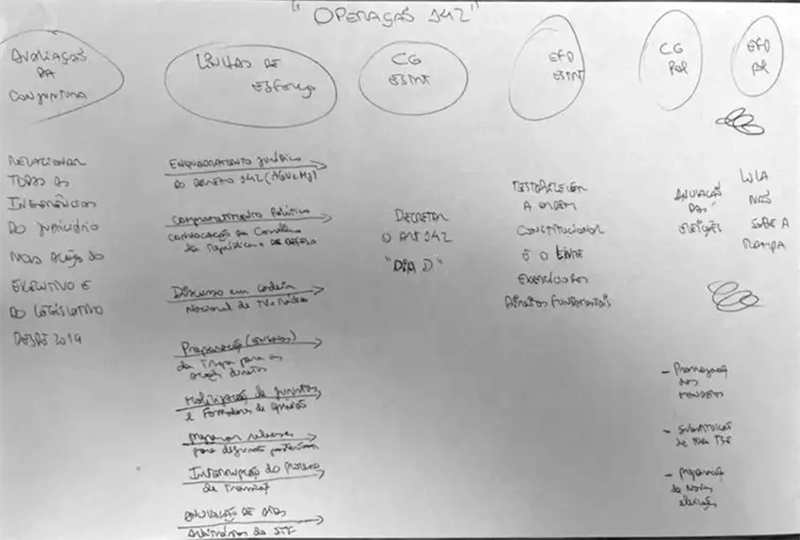 "OPERAÇÃO 142"
AVALIAÇÃO
DA
CONJUNTURA
RELACIONAR
TODAS AS
INTERFERÊNCIAS
DO JUDICIÁRIO
NAS AÇÕES DO
EXECUTIVO E
DO LEGISLATIVO
DESDE 2019
LINHAS DE
ESFORÇO
ENQUADRAMENTO JURÍDICO
DO DECRETO 142 (AGU e MJ)
COMPROMETIMENTO POLÍTICO
CONVOCAÇÃO do Conselho
da República e DE DEFESA
Discurso em cadeia
Nacional de TV e Rádio
Preparação
da Tropa para as
ações diretas
Mobilização de juristas
e Formadores de opinião
Preparar
para
Interrupção do processo
de transição
ANULAÇÃO DE ATOS
Arbitrários do STF
CG
ESTRT
DECRETAR
O ART 142
"DIA D"
EFD
ESTRT
RESTABELECER
A ORDEM
CONSTITUCIONAL
E O LIVRE
EXERCÍCIO DOS
DIREITOS FUNDAMENTAIS
CG
POL
ANULAÇÃO
DAS
ELEIÇÕES
- Prorrogação
dos
MANDATOS
- SUBSTITUIÇÃO
DE TODO TSE
- Preparação
de Novas
eleições
EFD
POL
LULA
NÃO
SOBE A
RAMPA